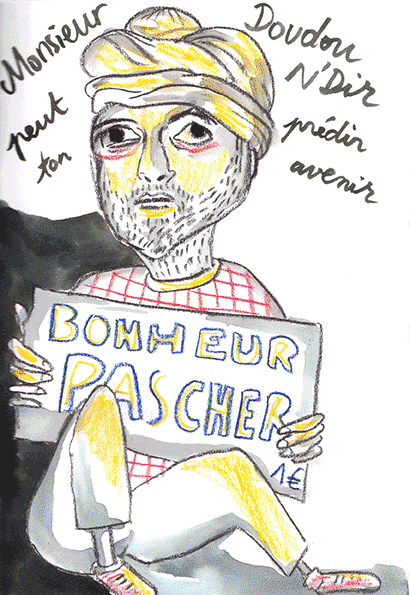 Monsieur Doudou N'Dir
peut prédir
ton avenir
BONHEUR
PASCHER
1€